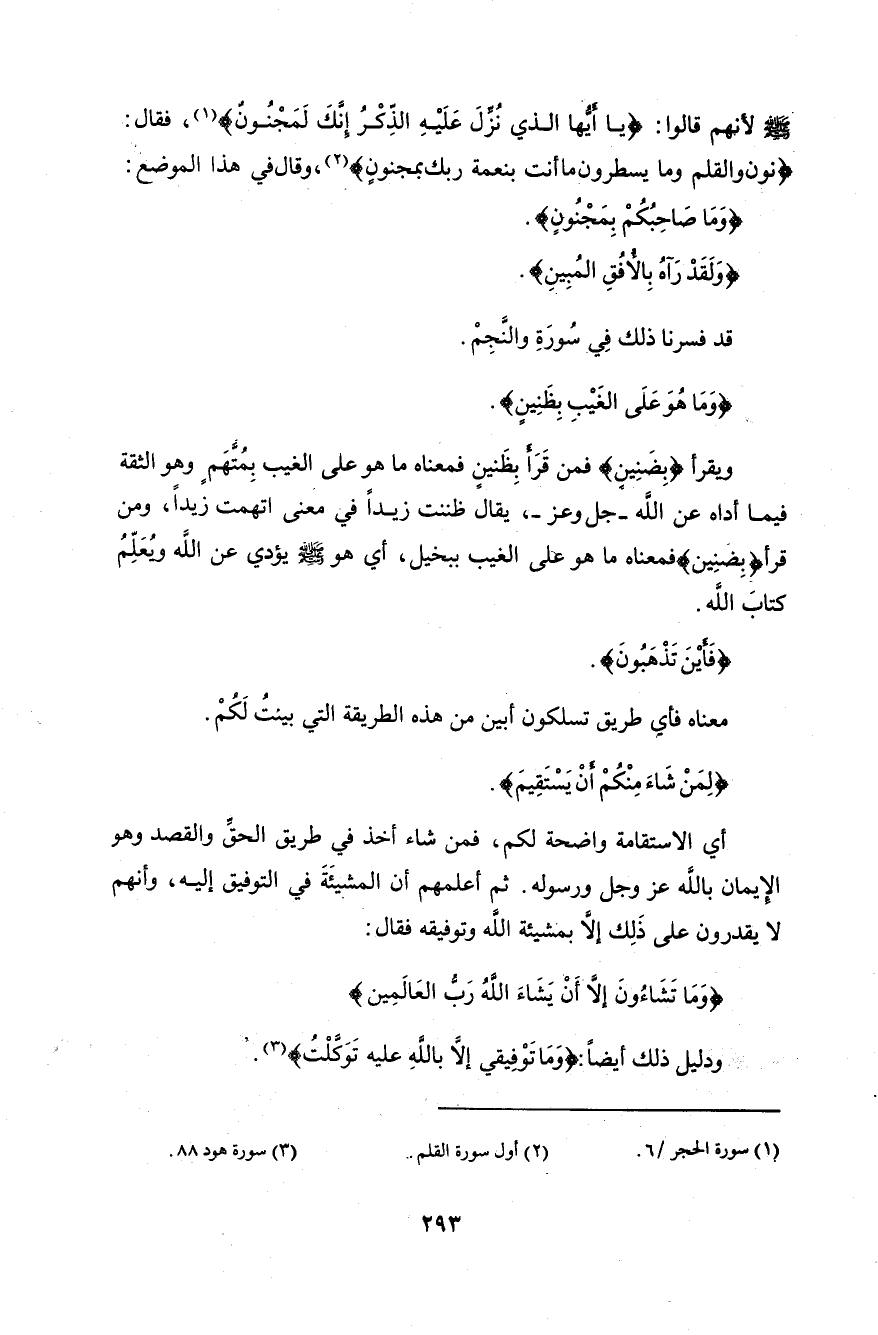 ﷺ لأنهم قالوا: ﴿يـا أَيُّها الـذي نُزِّلَ عَلَيْـهِ الذِّكْـرُ إِنَّكَ لَمَجْنُـونٌ﴾(١)، فقال:
﴿نون والقلم وما يسطرون ما أنت بنعمة ربك بمجنونٍ﴾(٢)، وقال في هذا الموضع:
﴿وَمَا صَاحِبُكُمْ بِمَجْنُونٍ﴾.
﴿وَلَقَدْ رَآهُ بِالْأُفُقِ المُبِينِ﴾.
قد فسرنا ذلك فِي سُورَةِ والنَّجِمْ.
﴿وَمَا هُوَ عَلَى الغَيْبِ بِظَنِينٍ﴾.
ويقرأ ﴿بِضَنِينٍ﴾ فمن قَرَأَ بِظَنينٍ فمعناه ما هو على الغيب بِمُتَّهَمٍ وهو الثقة
فيمـا أداه عن اللَّه ـ جل وعز ـ، يقال ظننت زيـداً في معنى اتهمت زيداً، ومن
قرأ ﴿بِضَنِينٍ﴾ فمعناه ما هو على الغيب ببخيل، أي هو ﷺ يؤدي عن اللَّه ويُعَلِّمُ
كتابَ اللَّه.
﴿فَأَيْنَ تَذْهَبُونَ﴾.
معناه فأي طريق تسلكون أبين من هذه الطريقة التي بينتُ لَكُمْ.
﴿لِمَنْ شَاءَ مِنْكُمْ أَنْ يَسْتَقِيمَ﴾.
أي الاستقامة واضحة لكم، فمن شاء أخذ في طريق الحقِّ والقصد وهو
الإِيمان باللَّه عز وجل ورسوله. ثم أعلمهم أن المشيئَةَ في التوفيق إليـه، وأنهم
لا يقدرون على ذَلِك إلَّا بمشيئة اللَّه وتوفيقه فقال:
﴿وَمَا تَشَاءُونَ إلَّا أَنْ يَشَاءَ اللَّهُ رَبُّ العَالَمِين﴾
ودليل ذلك أيضاً: ﴿وَمَا تَوْفِيقي إلَّا باللَّهِ عليه تَوَكَّلْتُ﴾(٣).
(١) سورة الحجر /٦. (٢) أول سورة القلم. (٣) سورة هود ٨٨.
٢٩٣